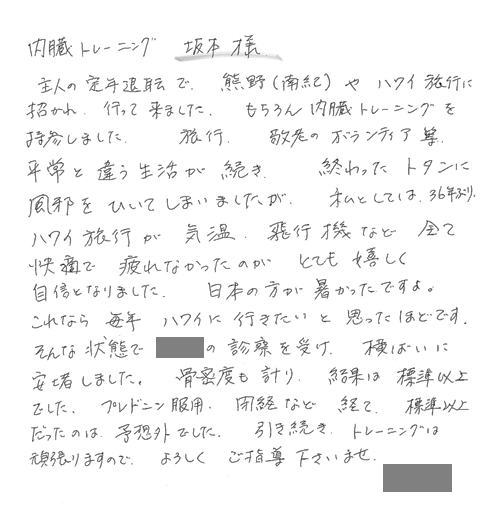 内臓トレーニング 坂本様
主人の定年退転で、熊野(南紀)や ハワイ旅行に
招かれ、行って来ました。もちろん内臓トレーニングを
持参しました。 旅行、敬老のボランティア等、
平常と違う生活が続き、終わったトタンに
風邪をひいてしまいましたが、私としては、36年ぶり、
ハワイ旅行が 気温、飛行機など 全て
快適で 疲れなかったのが とても嬉しく
自信となりました。 日本の方が暑かったですよ。
これなら 毎年 ハワイに行きたいと思ったほどです。
そんな状態で の診察を受け、横ばいに
安堵しました。骨密度も計り、結果は 標準以上
でした。プレドニン服用、閉経など 経て、標準以上
だったのは、予想外でした。引き続き、トレーニングは
頑張りますので、よろしく ご指導下さいませ。